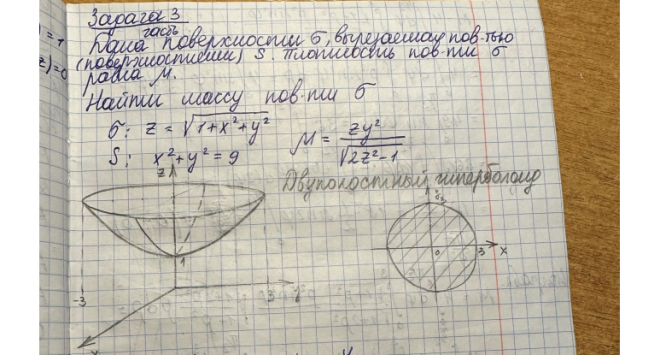 Задача 3
часть
Дана поверхности σ, вырезаемая пов-тью
(поверхностями) S. Плотность пов-ти σ
равна μ.
Найти массу пов-ти σ
σ: z = √(1+x²+y²)
μ = zy²/√(2z²-1)
S: x²+y² = 9
z
Двуполостный гиперболоид
3
0 3 x
1
-3 3 y
x